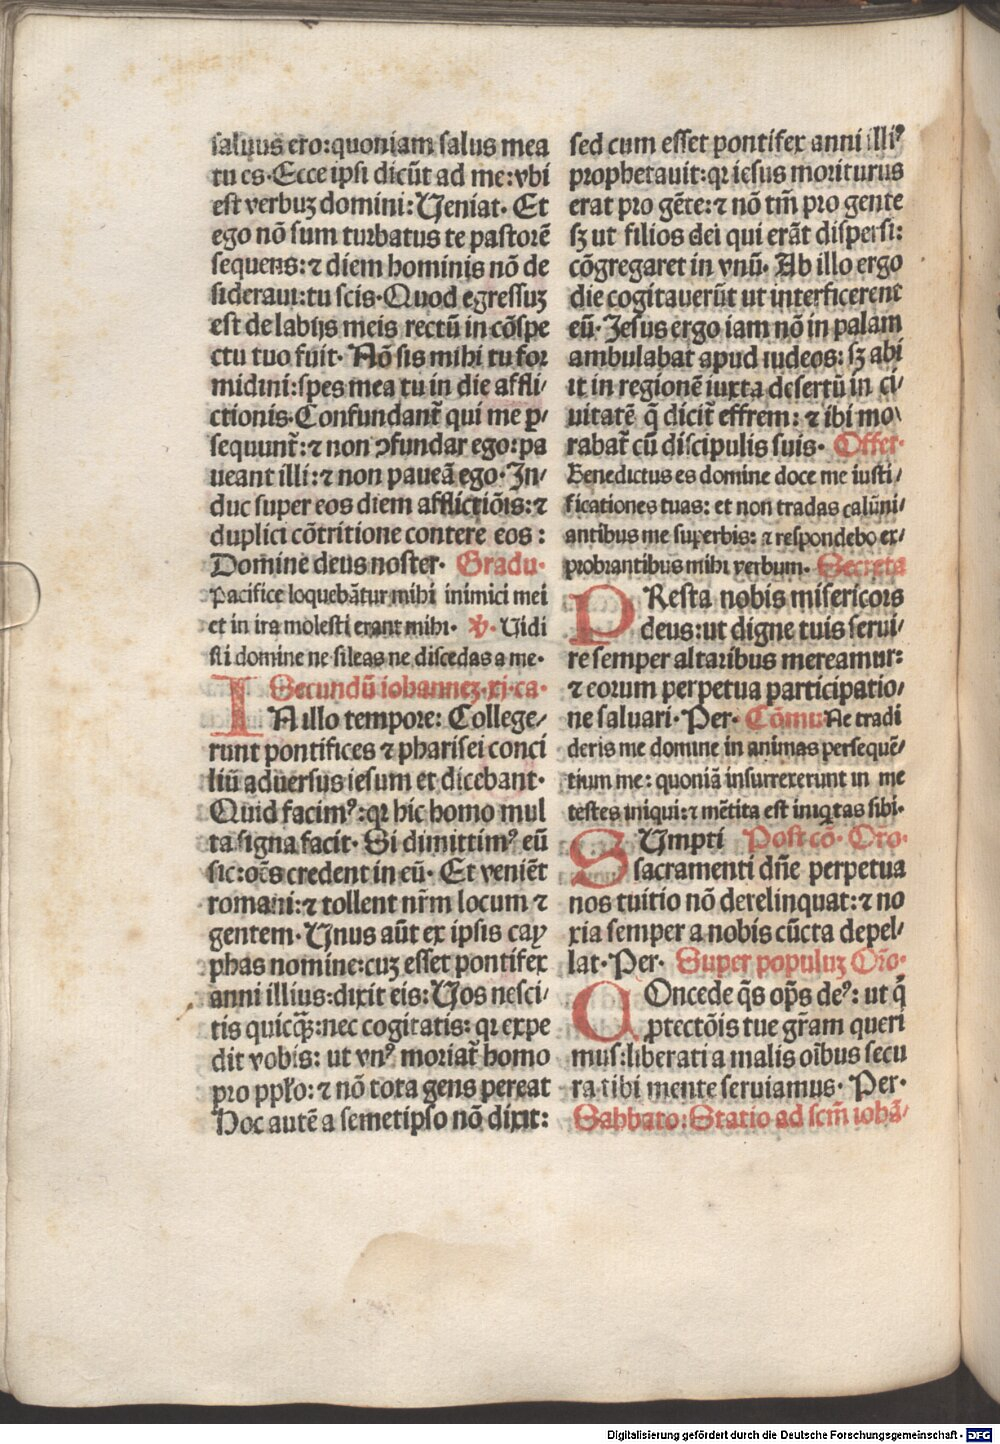 saluus ero:quoniam salus mea
tu es. Ecce ipsi dicūt ad me:vbi
est verbuꝫ domini: Ueniat. Et
ego nō sum turbatus te pastorē
sequens: ⁊ diem hominis nō de
sideraui:tu scis. Quod egressuꝫ
est de labijs meis rectū in cōspe
ctu tuo fuit. Nō sis mihi tu for
midini:spes mea tu in die affli/
ctionis. Confundant̄ qui me ꝑ/
sequunt̄: ⁊ non ↄfundar ego:pa
ueant illi: ⁊ non paueā ego. In/
duc super eos diem afflictiōis: ⁊
duplici cōtritione contere eos :
Domine deus noster. Gradu.
Pacifice loquebātur mihi inimici mei
et in ira molesti erant mihi. ℣. Uidi
sti domine ne sileas ne discedas a me.
Secundū iohanneꝫ.xj.ca.
IN illo tempore: College/
runt pontifices ⁊ pharisei conci
liū aduersus iesum et dicebant.
Quid facimꝰ:qꝛ hic homo mul
ta signa facit. Si dimittimꝰ eū
sic:oēs credent in eū. Et veniēt
romani: ⁊ tollent nr̄m locum ⁊
gentem. Unus aūt ex ipsis cay
phas nomine:cuꝫ esset pontifex
anni illius:dixit eis: Uos nesci/
tis quicꝗ̄:nec cogitatis: qꝛ expe
dit vobis: ut vnꝰ moriat̄ homo
pro pplo: ⁊ nō tota gens pereat
Hoc autē a semetipso nō dixit:
sed cum esset pontifex anni illiꝰ
prophetauit:qꝛ iesus moriturus
erat pro gēte: ⁊ nō tm̄ pro gente
sꝫ ut filios dei qui erāt dispersi:
cōgregaret in vnū. Ab illo ergo
die cogitauerūt ut interficerent
eū. Iesus ergo iam nō in palam
ambulabat apud iudeos: sꝫ abi
it in regionē iuxta desertū in ci/
uitatē q̄ dicit̄ effrem: ⁊ ibi mo\
rabat̄ cū discipulis suis. Offer.
Benedictus es domine doce me iusti/
ficationes tuas: et non tradas calūni/
antibus me superbis: ⁊ respondebo ex/
probrantibus mihi verbum. Secreta
PResta nobis misericors
deus:ut digne tuis serui/
re semper altaribus mereamur:
⁊ eorum perpetua participatio/
ne saluari. Per. Cōmu Ne tradi
deris me domine in animas persequē/
tium me: quoniā insurrexerunt in me
testes iniqui: ⁊ mētita est iniq̇tas sibi.
SUmpti Post cō. Oro.
sacramenti dn̄e perpetua
nos tuitio nō derelinquat: ⁊ no
xia semper a nobis cūcta depel/
lat. Per. Super populuꝫ Oro.
COncede q̄s op̄s deꝰ: ut q̄
ꝓtectōis tue gr̄am queri
mus:liberati a malis oībus secu
ra tibi mente seruiamus. Per.
Sabbato: Statio ad scm̄ iohā/
Digitalisierung gefördert durch die Deutsche Forschungsgemeinschaft - DFG